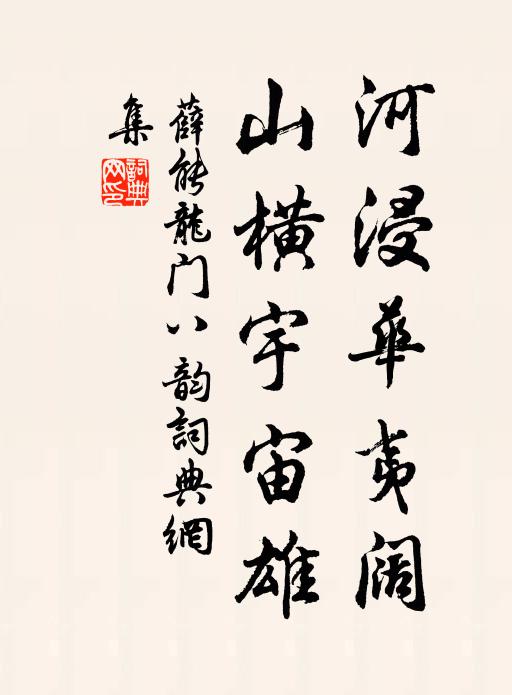 河浸華夷阔
山橫宇宙雄
薛能龍门八韵詞典網
集
詞典网印